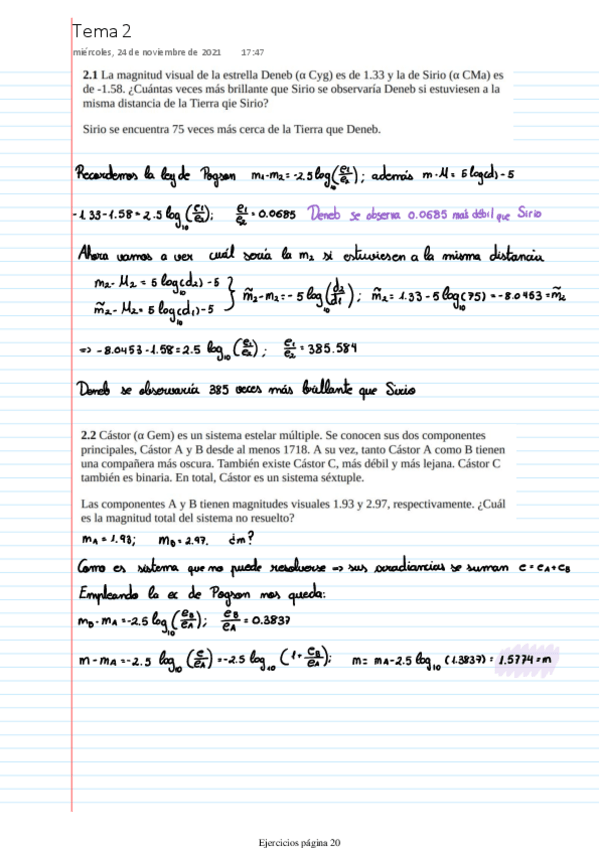 Tema 2
miércoles, 24 de noviembre de 2021 17:47
2.1 La magnitud visual de la estrella Deneb (α Cyg) es de 1.33 y la de Sirio (α CMa) es
de -1.58. ¿Cuántas veces más brillante que Sirio se observaría Deneb si estuviesen a la
misma distancia de la Tierra qie Sirio?
Sirio se encuentra 75 veces más cerca de la Tierra que Deneb.
Recordemos la ley de Pogson m₁-m₂=-2.5 log₁₀(e₁/e₂); además m-M = 5 log(d)-5
-1.33-1.58=2.5 log₁₀(e₁/e₂); e₁/e₂ = 0.0685 Deneb se observa 0.0685 más débil que Sirio
Ahora vamos a ver cuál sería la m₂ si estuviesen a la misma distancia
m₂-M₂ = 5 log₁₀(d₂)-5
m̃₂-M₂= 5 log₁₀(d₁)-5 } m̃₂-m₂=-5 log₁₀(d₂/d₁); m̃₂= 1.33-5 log₁₀(75)=-8.0453=m̃₂
=> -8.0453-1.58=2.5 log₁₀(e₁/e₂); e₁/e₂ = 385.584
Deneb se observaría 385 veces más brillante que Sirio
2.2 Cástor (α Gem) es un sistema estelar múltiple. Se conocen sus dos componentes
principales, Cástor A y B desde al menos 1718. A su vez, tanto Cástor A como B tienen
una compañera más oscura. También existe Cástor C, más débil y más lejana. Cástor C
también es binaria. En total, Cástor es un sistema séxtuple.
Las componentes A y B tienen magnitudes visuales 1.93 y 2.97, respectivamente. ¿Cuál
es la magnitud total del sistema no resuelto?
m_A = 1.93; m_B = 2.97. ¿m?
Como es sistema que no puede resolverse => sus irradiancias se suman e = e_A+e_B
Empleando la ec de Pogson nos queda:
m_B-m_A=-2.5 log₁₀(e_B/e_A); e_B/e_A = 0.3837
m-m_A=-2.5 log₁₀(e/e_A)=-2.5 log₁₀(1+e_B/e_A); m= m_A-2.5 log₁₀(1.3837)= 1.5774=m
Ejercicios página 20